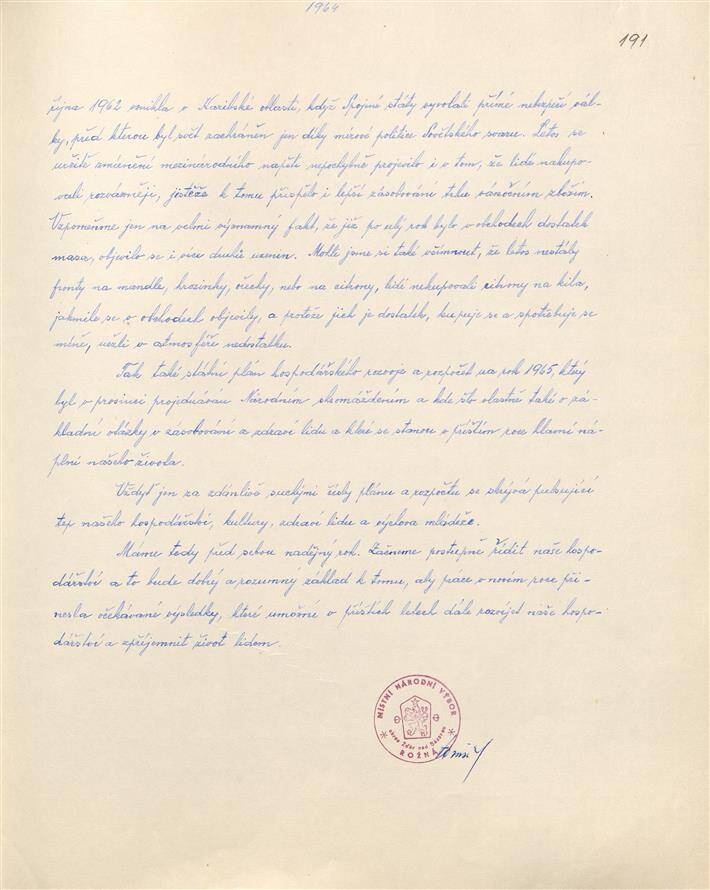 1964
191
října 1962 vznikla v Karibské oblasti, když Spojené státy vyvolali přímé nebezpečí vál-
ky, před kterou byl svět zachráněn jen díky mírové politice Sovětského svazu. Letos se
určité zmírnění mezinárodního napětí nepochybně projevilo i v tom, že lidé nakupo-
vali rozvážněji, jestěže k tomu přispělo i lepší zásobování trhu vánočním zbožím.
Vzpomeňme jen na velmi významný fakt, že již po celý rok bylo v obchodech dostatek
masa, objevilo se i více druhů uzenin. Mohli jsme si také všimnout, že letos nestály
fronty na mandle, hrozinky, ořechy, nebo na citrony, lidé nekupovali citrony na kila,
jakmile se v obchodech objevily, a protože jich je dostatek, kupuje se a spotřebuje se
méně, nežli v atmosféře nedostatku.
Tak také státní plán hospodářského rozvoje a rozpočet na rok 1965, který
byl v prosinci projednáván Národním shromážděním a kde šlo vlastně také o zá-
kladní otázky v zásobování a zdraví lidu a které se stanou v příštím roce hlavní ná-
plní našeho života.
Vždyť jen za zdánlivě suchými čísly plánu a rozpočtu se skrývá pulsující
tep našeho hospodářství, kultury, zdraví lidu a výchova mládeže.
Máme tedy před sebou nadějný rok. Začneme postupně řídit naše hospo-
dářství a to bude dobrý a rozumný základ k tomu, aby práce v novém roce při-
nesla očekávané výsledky, které umožní v příštích letech dále rozvíjet naše hospo-
dářství a zpříjemnit život lidem.
MÍSTNÍ NÁRODNÍ VÝBOR
okres Žďár nad Sázavou
ROŽNÁ